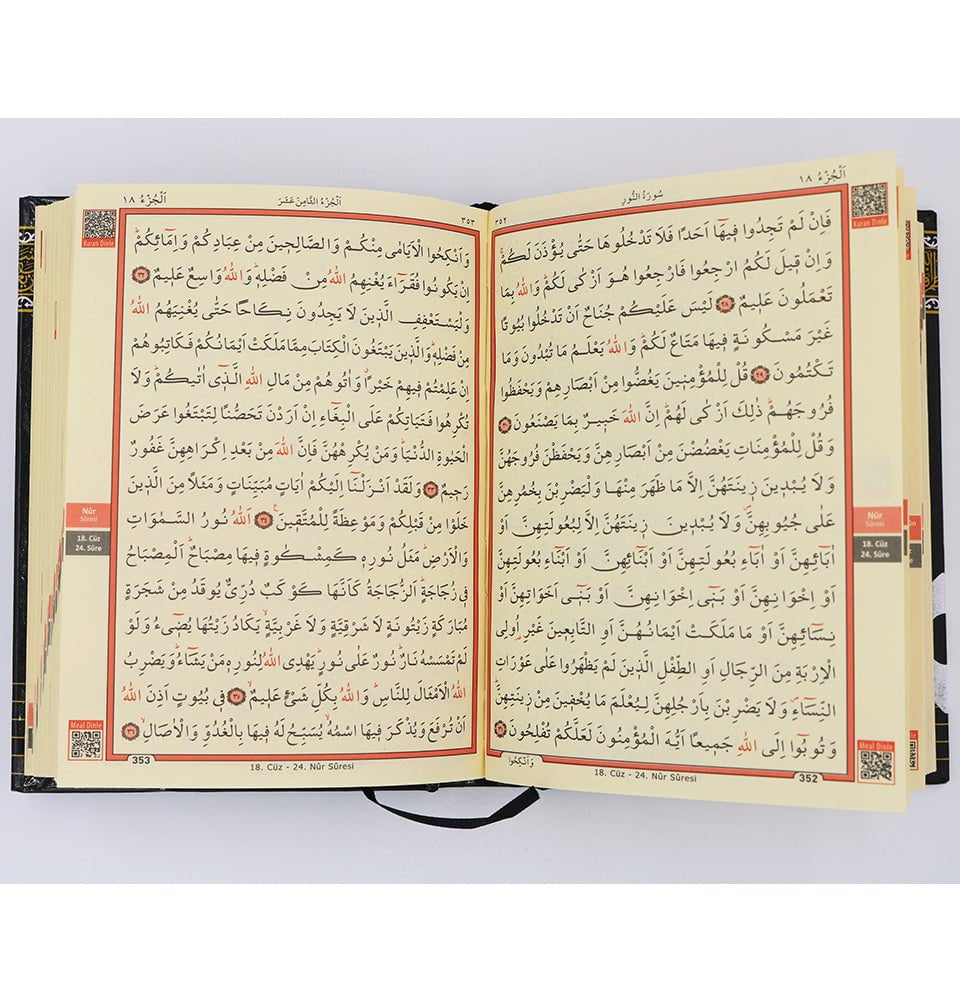 اَلْجُزْءُ ١٨
سُورَةُ النُّورِ
٣٥٢
Kuran Dinle
فَاِنْ لَمْ تَجِدُوا فٖيهَٓا اَحَدًا فَلَا تَدْخُلُوهَا حَتّٰى يُؤْذَنَ لَكُمْۚ
وَاِنْ قٖيلَ لَكُمُ ارْجِعُوا فَارْجِعُوا هُوَ اَزْكٰى لَكُمْۜ وَاللّٰهُ بِمَا
تَعْمَلُونَ عَلٖيمٌ ٢٨ لَيْسَ عَلَيْكُمْ جُنَاحٌ اَنْ تَدْخُلُوا بُيُوتًا
غَيْرَ مَسْكُونَةٍ فٖيهَا مَتَاعٌ لَكُمْۜ وَاللّٰهُ يَعْلَمُ مَا تُبْدُونَ وَمَا
تَكْتُمُونَ ٢٩ قُلْ لِلْمُؤْمِنٖينَ يَغُضُّوا مِنْ اَبْصَارِهِمْ وَيَحْفَظُوا
فُرُوجَهُمْۜ ذٰلِكَ اَزْكٰى لَهُمْۜ اِنَّ اللّٰهَ خَبٖيرٌ بِمَا يَصْنَعُونَ ٣٠
وَقُلْ لِلْمُؤْمِنَاتِ يَغْضُضْنَ مِنْ اَبْصَارِهِنَّ وَيَحْفَظْنَ فُرُوجَهُنَّ
وَلَا يُبْدٖينَ زٖينَتَهُنَّ اِلَّا مَا ظَهَرَ مِنْهَا وَلْيَضْرِبْنَ بِخُمُرِهِنَّ
عَلٰى جُيُوبِهِنَّۖ وَلَا يُبْدٖينَ زٖينَتَهُنَّ اِلَّا لِبُعُولَتِهِنَّ اَوْ
اٰبَٓائِهِنَّ اَوْ اٰبَٓاءِ بُعُولَتِهِنَّ اَوْ اَبْنَٓائِهِنَّ اَوْ اَبْنَٓاءِ بُعُولَتِهِنَّ
اَوْ اِخْوَانِهِنَّ اَوْ بَنٖٓى اِخْوَانِهِنَّ اَوْ بَنٖٓى اَخَوَاتِهِنَّ اَوْ
نِسَٓائِهِنَّ اَوْ مَا مَلَكَتْ اَيْمَانُهُنَّ اَوِ التَّابِعٖينَ غَيْرِ اُو۬لِى
الْاِرْبَةِ مِنَ الرِّجَالِ اَوِ الطِّفْلِ الَّذٖينَ لَمْ يَظْهَرُوا عَلٰى عَوْرَاتِ
النِّسَٓاءِۖ وَلَا يَضْرِبْنَ بِاَرْجُلِهِنَّ لِيُعْلَمَ مَا يُخْفٖينَ مِنْ زٖينَتِهِنَّۜ
وَتُوبُٓوا اِلَى اللّٰهِ جَمٖيعًا اَيُّهَ الْمُؤْمِنُونَ لَعَلَّكُمْ تُفْلِحُونَ ٣١
Nûr
Sûresi
18. Cüz
24. Sûre
Meal Dinle
وَاَنْكِحُوا
18. Cüz - 24. Nûr Sûresi
352
اَلْجُزْءُ ١٨
اَلْجُزْءُ الثَّامِنَ عَشَرَ
٣٥٣
Kuran Dinle
وَاَنْكِحُوا الْاَيَامٰى مِنْكُمْ وَالصَّالِحٖينَ مِنْ عِبَادِكُمْ وَاِمَٓائِكُمْۜ
اِنْ يَكُونُوا فُقَرَٓاءَ يُغْنِهِمُ اللّٰهُ مِنْ فَضْلِهٖۜ وَاللّٰهُ وَاسِعٌ عَلٖيمٌ ٣٢
وَلْيَسْتَعْفِفِ الَّذٖينَ لَا يَجِدُونَ نِكَاحًا حَتّٰى يُغْنِيَهُمُ اللّٰهُ
مِنْ فَضْلِهٖۜ وَالَّذٖينَ يَبْتَغُونَ الْكِتَابَ مِمَّا مَلَكَتْ اَيْمَانُكُمْ فَكَاتِبُوهُمْ
اِنْ عَلِمْتُمْ فٖيهِمْ خَيْرًاۗ وَاٰتُوهُمْ مِنْ مَالِ اللّٰهِ الَّذٖٓى اٰتٰيكُمْۜ وَلَا
تُكْرِهُوا فَتَيَاتِكُمْ عَلَى الْبِغَٓاءِ اِنْ اَرَدْنَ تَحَصُّنًا لِتَبْتَغُوا عَرَضَ
الْحَيٰوةِ الدُّنْيَاۜ وَمَنْ يُكْرِهْهُنَّ فَاِنَّ اللّٰهَ مِنْ بَعْدِ اِكْرَاهِهِنَّ غَفُورٌ
رَحٖيمٌ ٣٣ وَلَقَدْ اَنْزَلْنَٓا اِلَيْكُمْ اٰيَاتٍ مُبَيِّنَاتٍ وَمَثَلًا مِنَ الَّذٖينَ
خَلَوْا مِنْ قَبْلِكُمْ وَمَوْعِظَةً لِلْمُتَّقٖينَ ٣٤ اَللّٰهُ نُورُ السَّمٰوَاتِ
وَالْاَرْضِۜ مَثَلُ نُورِهٖ كَمِشْكٰوةٍ فٖيهَا مِصْبَاحٌۜ اَلْمِصْبَاحُ
فٖى زُجَاجَةٍۜ اَلزُّجَاجَةُ كَاَنَّهَا كَوْكَبٌ دُرِّىٌّ يُوقَدُ مِنْ شَجَرَةٍ
مُبَارَكَةٍ زَيْتُونَةٍ لَا شَرْقِيَّةٍ وَلَا غَرْبِيَّةٍۙ يَكَادُ زَيْتُهَا يُضٖٓىءُ وَلَوْ
لَمْ تَمْسَسْهُ نَارٌۜ نُورٌ عَلٰى نُورٍۜ يَهْدِى اللّٰهُ لِنُورِهٖ مَنْ يَشَٓاءُۜ وَيَضْرِبُ
اللّٰهُ الْاَمْثَالَ لِلنَّاسِۜ وَاللّٰهُ بِكُلِّ شَىْءٍ عَلٖيمٌۙ ٣٥ فٖى بُيُوتٍ اَذِنَ اللّٰهُ
اَنْ تُرْفَعَ وَيُذْكَرَ فٖيهَا اسْمُهُۙ يُسَبِّحُ لَهُ فٖيهَا بِالْغُدُوِّ وَالْاٰصَالِۙ ٣٦
Nûr
Sûresi
18. Cüz
24. Sûre
Meal Dinle
353
18. Cüz - 24. Nûr Sûresi